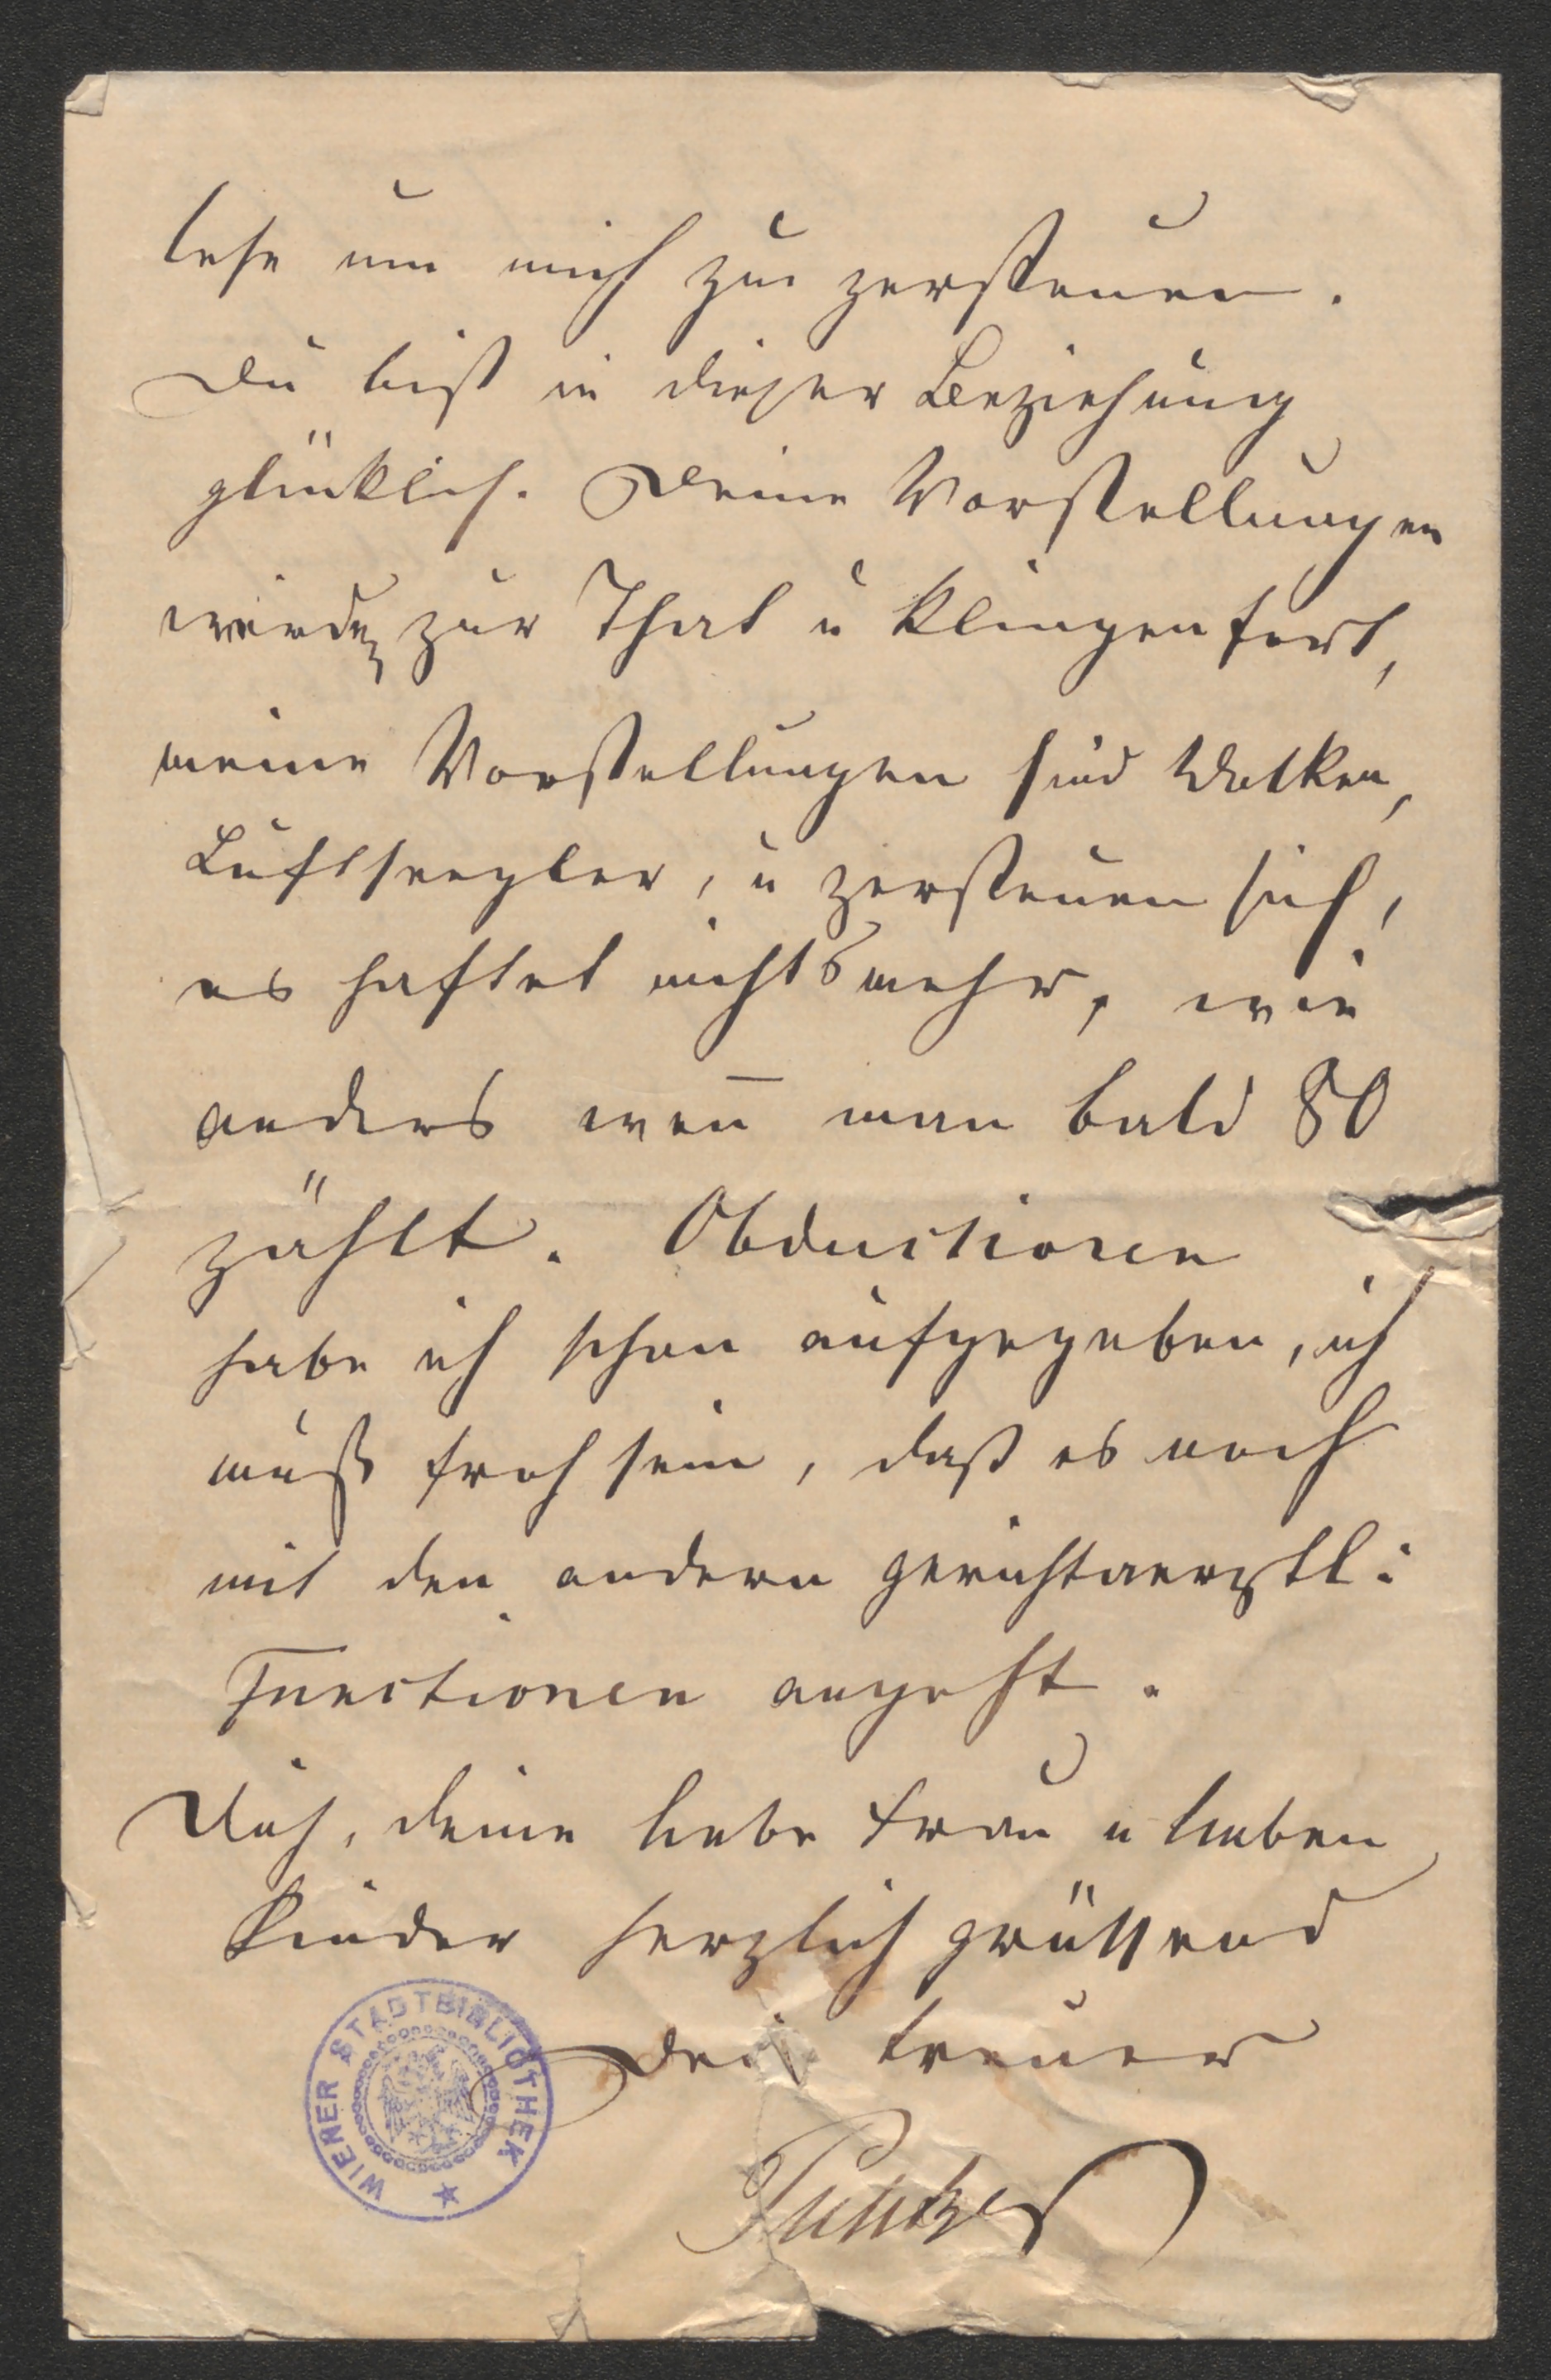 lese um mich zu zerstreuen.
Du bist in dieser Beziehung
glücklich. Deine Vorstellungen
werden zur That u klingen fort,
meine Vorstellungen sind Wolken,
Luftsegler, u zerstreuen sich,
es haftet nichts mehr, wie
anders wen̄ man bald 80
zählt. Obductionen
habe ich schon aufgegeben, ich
muß froh sein, daß es noch
mit den andern gerichtaerztl:
Functionen angeht.
Dich, deine liebe Frau u lieben
Kinder herzlich grüssend
Dein treuer
WIENER STADTBIBLIOTHEK